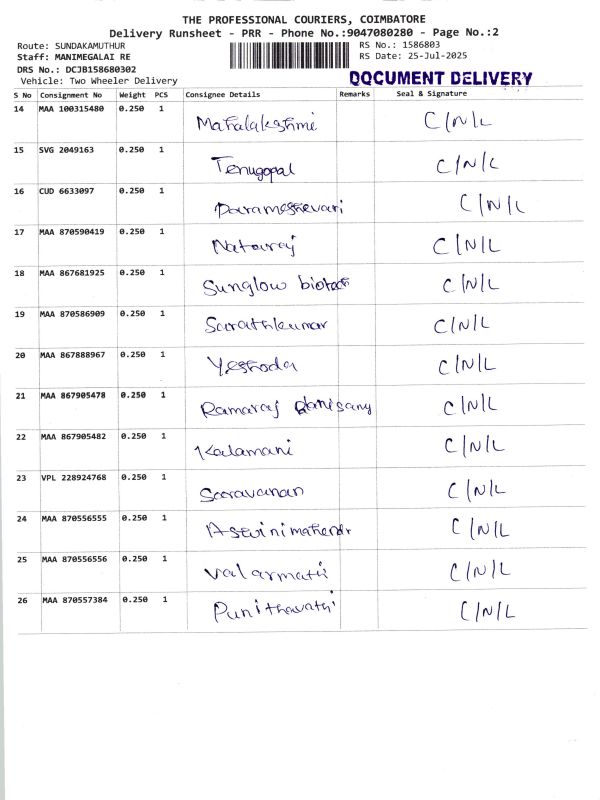 THE PROFESSIONAL COURIERS, COIMBATORE
Delivery Runsheet - PRR - Phone No.:9047080280 - Page No.:2
Route: SUNDAKAMUTHUR RS No.: 1586803
Staff: MANIMEGALAI RE RS Date: 25-Jul-2025
DRS No.: DCJB158680302
Vehicle: Two Wheeler Delivery DOCUMENT DELIVERY
S No Consignment No Weight PCS Consignee Details Remarks Seal & Signature
14 MAA 100315480 0.250 1 Mahalakshmi C/N/L
15 SVG 2049163 0.250 1 Tenugopal C/N/L
16 CUD 6633097 0.250 1 Parameshevari C/N/L
17 MAA 870590419 0.250 1 Natavraj C/N/L
18 MAA 867681925 0.250 1 Sunglow biotech C/N/L
19 MAA 870586909 0.250 1 Sarathkumar C/N/L
20 MAA 867888967 0.250 1 Yeshoda C/N/L
21 MAA 867905478 0.250 1 Ramaraj C/N/L
22 MAA 867905482 0.250 1 Kalamani C/N/L
23 VPL 228924768 0.250 1 Saravanan C/N/L
24 MAA 870556555 0.250 1 Aswinimahendr C/N/L
25 MAA 870556556 0.250 1 Valarmathi C/N/L
26 MAA 870557384 0.250 1 Punithavathi C/N/L